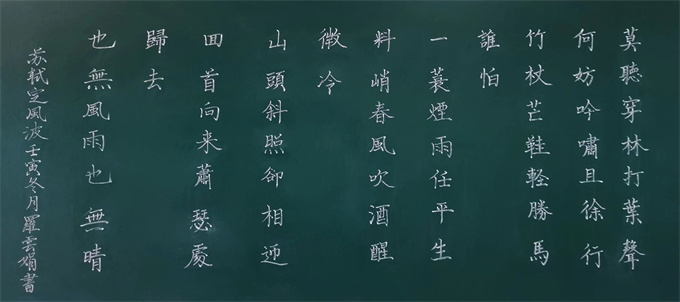 莫聽穿林打葉聲
何妨吟嘯且徐行
竹杖芒鞋軽勝馬
誰怕
一蓑煙雨任平生
料峭春風吹酒醒
微冷
山頭斜照卻相迎
回首向来蕭瑟處
歸去
也無風雨也無晴
苏軾定風波壬寅冬月羅雲娟書